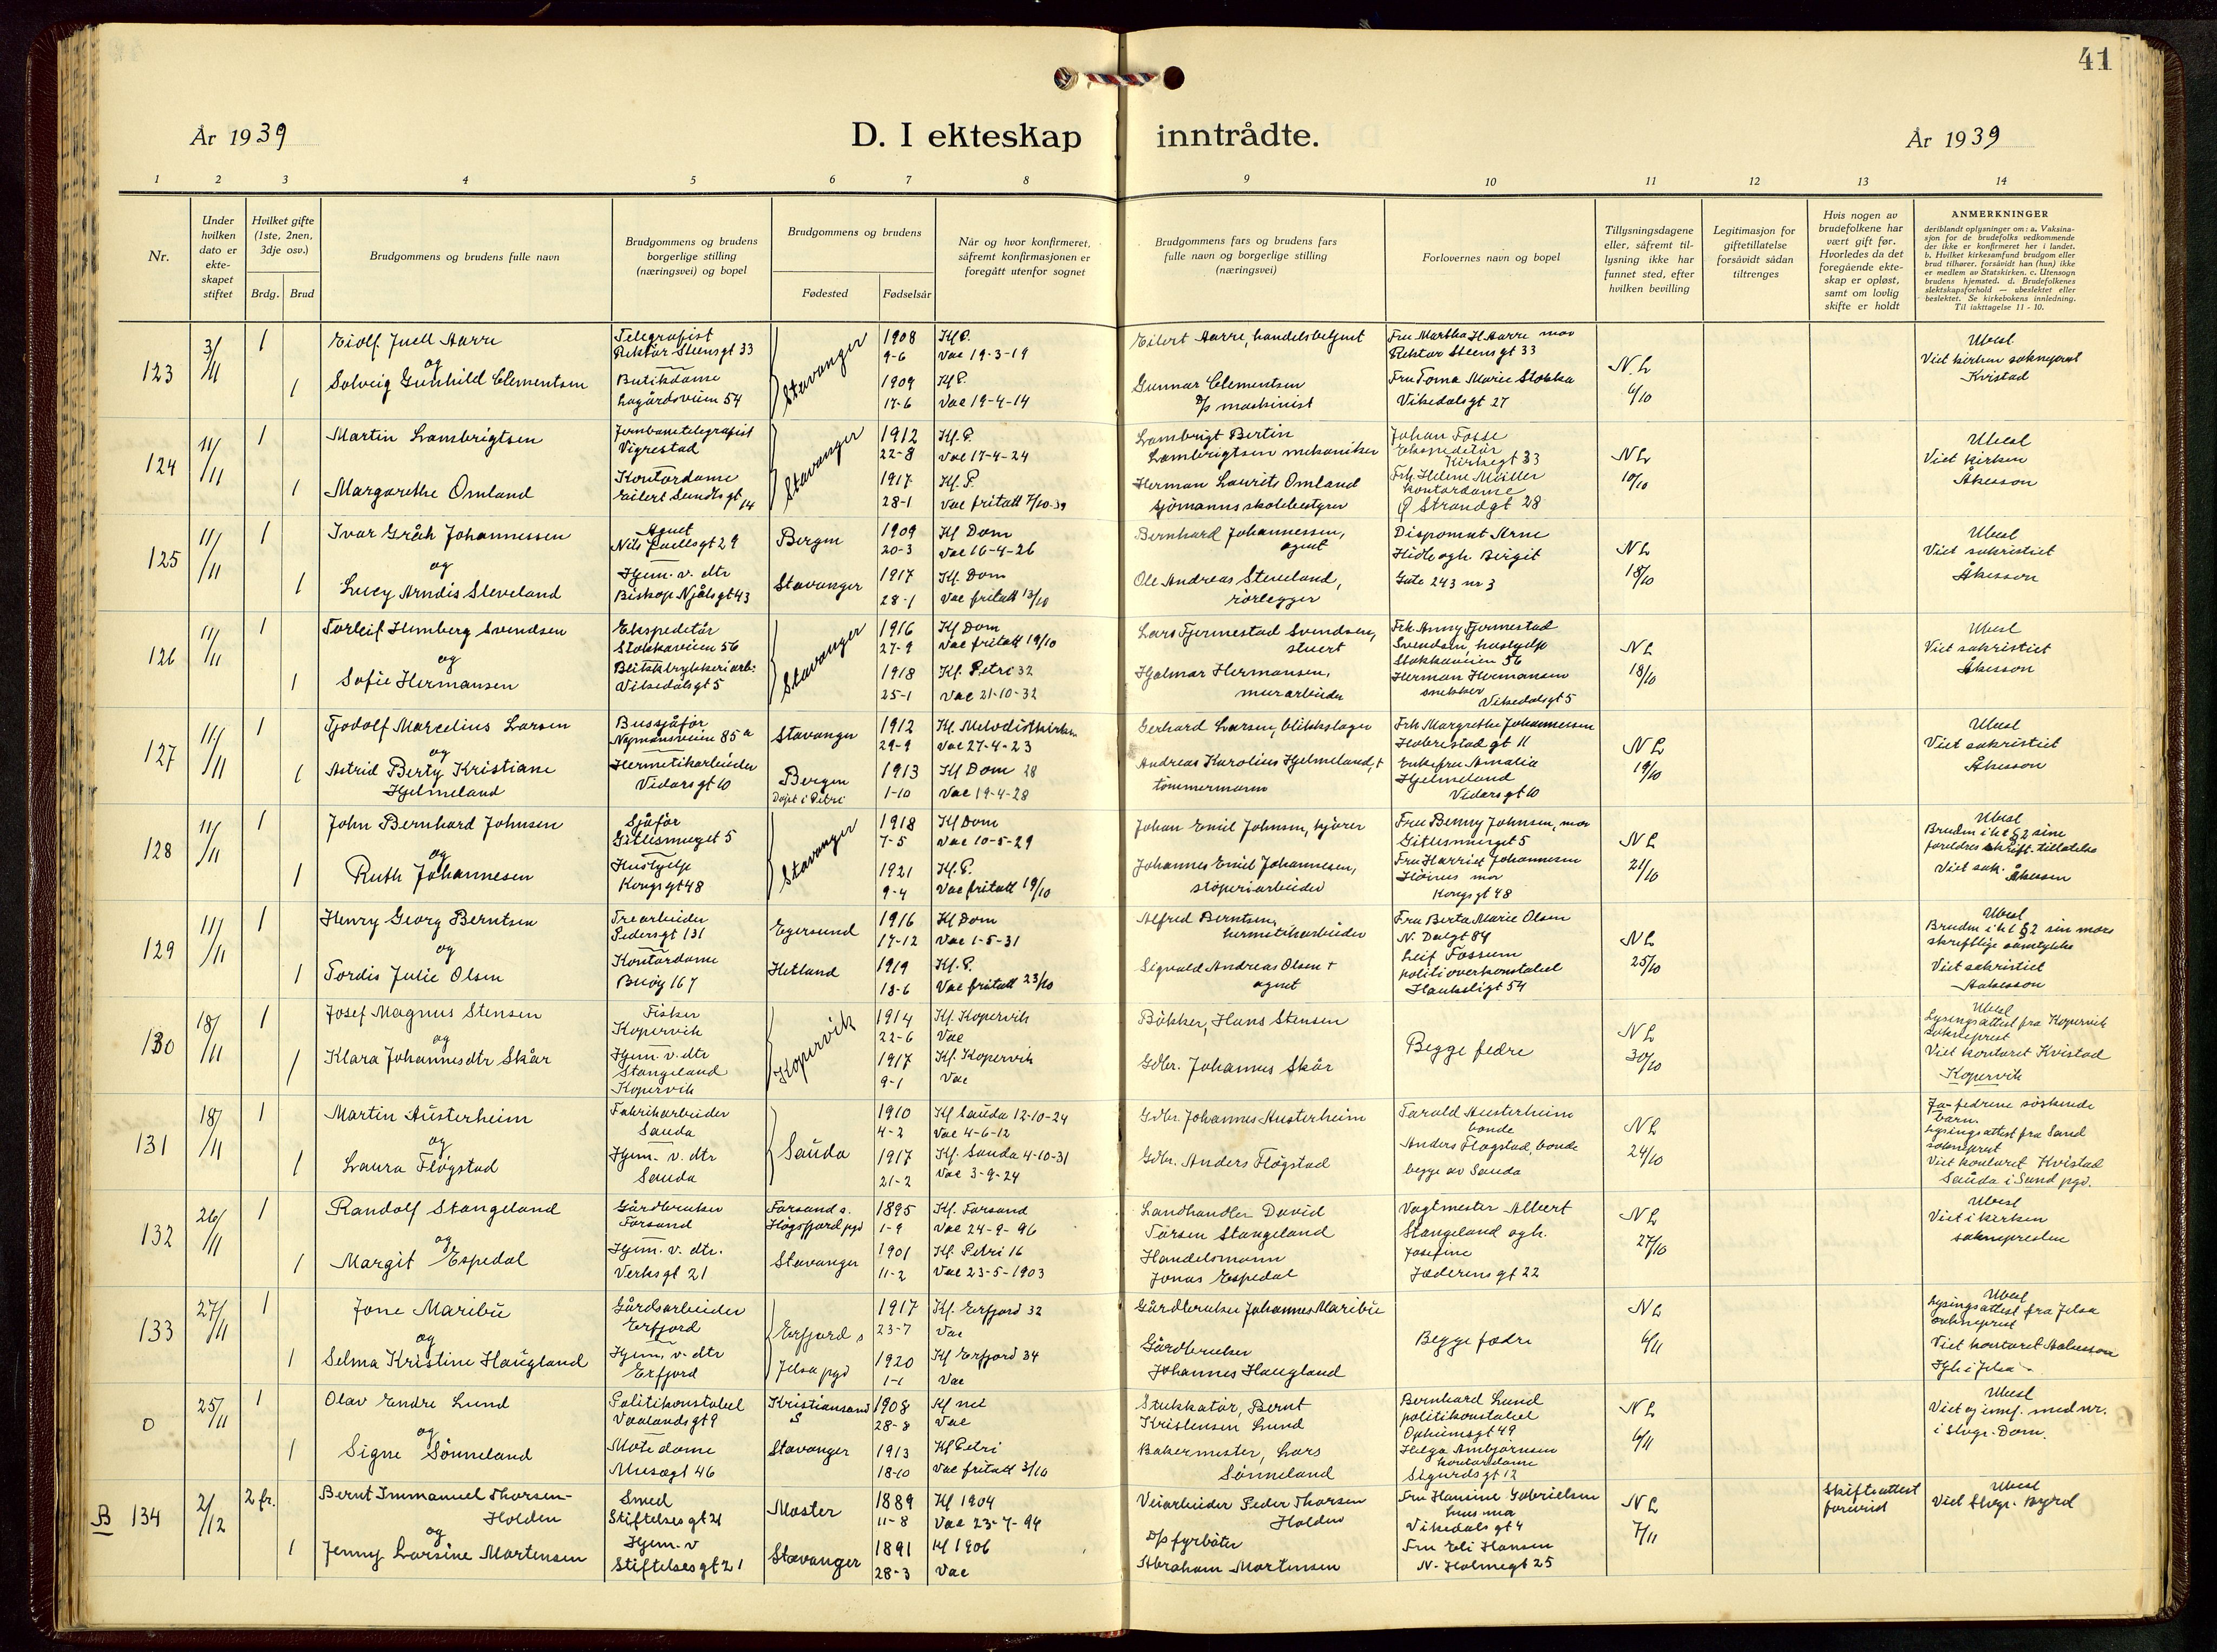 41
År 1939
D. I ekteskap inntrådte.
År 1939
1 2 3 4 5 6 7 8 9 10 11 12 13 14
Nr.
Under hvilken dato er ekte- skapet stiftet
Hvilket gifte (1ste, 2nen, 3dje osv.)
Brdg. Brud
Brudgommens og brudens fulle navn
Brudgommens og brudens borgerlige stilling (næringsvei) og bopel
Brudgommens og brudens
Fødested Fødselsår
Når og hvor konfirmeret, såfremt konfirmasjonen er foregått utenfor sognet
Brudgommens fars og brudens fars fulle navn og borgerlige stilling (næringsvei)
Forlovernes navn og bopel
Tillysningsdagene eller, såfremt til- lysning ikke har funnet sted, efter hvilken bevilling
Legitimasjon for giftetillatelse forsåvidt sådan tiltrenges
Hvis nogen av brudefolkene har vært gift før. Hvorledes da det foregående ekte- skap er opløst, samt om lovlig skifte er holdt
ANMERKNINGER
deriblandt oplysninger om: a. Vaksina-
sjon for de brudefolks vedkommende
der ikke er konfirmeret her i landet.
b. Hvilket kirkesamfund brudgom eller
brud tilhører, forsåvidt han (hun) ikke
er medlem av Statskirken. c. Utensogn
brudens hjemsted. d. Brudefolkenes
slektskapsforhold — ubeslektet eller
beslektet. Se kirkebokens innledning.
Til iakttagelse 11 - 10.
123 3/11 1 Eiolf Juell Aarre Telegrafist Stavanger 1908 Kf P. Eilert Aarre, handelsbetjent Fru Martha H Aarre mor N. L Ubesl
og Rektor Steensgt 33 9-6 Vac 19-3-19 Rektor Steensgt 33 Viet kirken sokneprest
1 Solveig Gunhild Clementsen Butikdame 1909 Kf P. Gunnar Clementsen Fru Toma Marie Stokka 6/10 Kvistad
Lagårdsveien 54 17-6 Vac 19-4-14 D/s maskinist Vikedalsgt 27
124 11/11 1 Martin Lambrigtsen Jernbanetelegrafist Stavanger 1912 Kf. P. Lambrigt Bertin Johan Fosse N L Ubesl
Vigrestad 22-8 Vac 17-4-24 Lambrigtsen mekaniker Ekspeditør Kirkegt 33 Viet kirken
1 Margarethe Omland Kontordame 1917 Kf. P Herman Laurits Omland Frk. Helene Müller 10/10 Åkesson
Eilert Sundts gt 14 28-1 Vac fritatt 7/10-39 sjømannsskolebestyrer kontordame Ø Strandgt 28
125 11/11 1 Ivar Gråh Johannessen Agent Bergen 1909 Kf Dom Bernhard Johannessen, Disponent Arne N L Ubesl
og Nils Juellsgt 29 20-3 Vac 16-4-26 agent Hidle ogh. Birgit Viet sakristiet
1 Lucy Arndis Steveland Hjem. v. dtr Stavanger 1917 Kf. Dom Ole Andreas Steveland, Gate 243 nr 3 18/10 Åkesson
Biskop Njålsgt 43 28-1 Vac fritatt 13/10 rørlegger
126 11/11 1 Torleif Hemberg Svendsen Ekspeditør Stavanger 1916 Kf Dom Lars Tjermestad Svendsen, Frk. Anny Tjermestad N L Ubesl
og Stokkaveien 56 27-9 Vac fritatt 19/10 stuert Svendsen, hushjelp Viet sakristiet
1 Sofie Hermansen 1918 Kf. Petri 32 Hjalmar Hermansen, Stokkaveien 56 18/10 Åkesson
Vikedalsgt 5 25-1 Vac 21-10-32 murarbeider Herman Hermansen snekker Vikedalsgt 5
127 11/11 1 Tjodolf Marcelius Larsen Bussjåfør Stavanger 1912 Kf. Metodistkirken Gerhard Larsen, blikkslager Frk Margrethe Johannessen N L Ubesl
og Nymansveien 85a 29-9 Vac 27-4-23 gt 11 Viet sakristiet
1 Astrid Berty Kristiane Hermetikarbeider Bergen 1913 Kf Dom 28 Andreas Karolius Hjelmeland, + Enkefru Amalia 19/10 Åkesson
Hjelmeland Vidarsgt 10 Døpt i Petri 1-10 Vac 19-4-28 tømmermann Hjelmeland Vidarsgt 10
128 11/11 1 John Bernhard Johnsen Sjåfør Stavanger 1918 Kf Dom Johan Emil Johnsen, kjører Fru Benny Johnsen, mor N L Ubesl
og Gitlesmuget 5 7-5 Vac 10-5-29 Gitlesmuget 5 Bruden i h t § 2 sine
1 Ruth Johannesen Hushjelp 1921 Kf. P. Johannes Emil Johannesen, Fru Harriet Johannesen 21/10 foreldres skrift. tillatelse
Kongsgt 48 9-4 Vac fritatt 19/10 støperiarbeider mor Kongsgt 48 Viet sak. Åkesson
129 11/11 1 Henry Georg Berntsen Trearbeider Egersund 1916 Kf Dom Alfred Berntsen, Fru Berta Marie Olsen N L Ubesl
og Pedersgt 131 17-12 Vac 1-5-31 hermetikarbeider N. Dalgt 84 Bruden i h t § 2 sin mors
1 Tordis Julie Olsen Kontordame Hetland 1919 Kf. P. Sigvald Andreas Olsen + Leif Fossum 25/10 skriftlige samtykke
Buøy 167 18-6 Vac fritatt 23/10 agent politioverkonstabel Haukeligt 54 Viet sakristiet Aakesson
130 18/11 1 Josef Magnus Stensen Fisker Kopervik 1914 Kf. Kopervik Bøkker, Hans Stensen N L Ubesl
og Kopervik 22-6 Vac Begge fedre Lysingsattest fra Kopervik sokneprest
1 Klara Johannesdtr Skår Hjem. v. dtr 1917 Kf. Kopervik Gdbr. Johannes Skår 30/10 Viet kontoret Kvistad
Stangeland Kopervik 9-1 Vac Kopervik
131 18/11 1 Martin Austerheim Fabrikarbeider Sauda 1910 Kf Sauda 12-10-24 Gdbr. Johannes Austerheim Torald Austerheim N L Ja- fedrene søskende barn.
og Sauda 4-2 Vac 4-6-12 bonde Lysingsattest fra Sand sokneprest
1 Laura Fløgstad Hjem. v. dtr 1917 Kf. Sauda 4-10-31 Gdbr. Anders Fløgstad Anders Fløgstad, bonde 24/10 Viet kontoret Kvistad
Sauda 21-2 Vac 3-9-24 begge av Sauda Sauda i Sand pgd.
132 26/11 1 Randolf Stangeland Gårdbruker Forsand s. 1895 Kf. Forsand Landhandler David Vagtmester Albert N L Ubesl
og Forsand Høgsfjord pgd 1-9 Vac 24-9-96 Torsen Stangeland Stangeland ogh. Viet i kirken
1 Margit Espedal Hjem. v. dtr. Stavanger 1901 Kf. Petri 16 Handelsmann Josefine 27/10 soknepresten
Verksgt 21 11-2 Vac 23-5-1903 Jonas Espedal Jæderensgt 22
133 27/11 1 Jone Maribu Gårdsarbeider Erfjord s 1917 Kf. Erfjord 32 Gårdbruker Johannes Maribu N L Ubesl
og Erfjord 23-7 Vac Begge fædre Lysingsattest fra Jelsa sokneprest
1 Selma Kristine Haugland Hjem. v. dtr Jelsa pgd 1920 Kf Erfjord 34 Gårdbruker 6/11 Viet kontoret Aakesson
Erfjord 1-1 Vac Johannes Haugland i Jelsa
0 25/11 1 Olav Endre Lund Politikonstabel Kristiansand S 1908 Kf nei Stukkatør, Bernt Bernhard Lund N L Ubesl
og Vaalandsgt 9 28-8 Vac Kristensen Lund politikonstabel Viet ej innf. med nr.
1 Signe Sønneland Motedame Stavanger 1913 Kf Petri Bakermester, Lars gt 49 6/11 i Stvgr. Dom.
Musegt 46 18-10 Vac fritatt 3/10 Sønneland Helga Ambjørnsen kontordame Sigurdsgt 12
B 134 2/12 2 fr. Bernt Immanuel Thorsen- Smed Moster 1889 Kf 1904 Veiarbeider Peder Thorsen Fru Hansine Gabrielsen N L Skifteattest Ubesl
Holden Stiftelsesgt 21 11-8 Vac 23-7-94 Holden Vikedalsgt 4 forevist Viet Stvgr. Byrd
og Hjem. v Fru Eli Hansen 7/11
1 Jenny Larsine Martensen Stiftelsesgt 21 Stavanger 1891 Kf 1906 D/s fyrbøter N. Holmegt 25
28-3 Vac Abraham Martensen